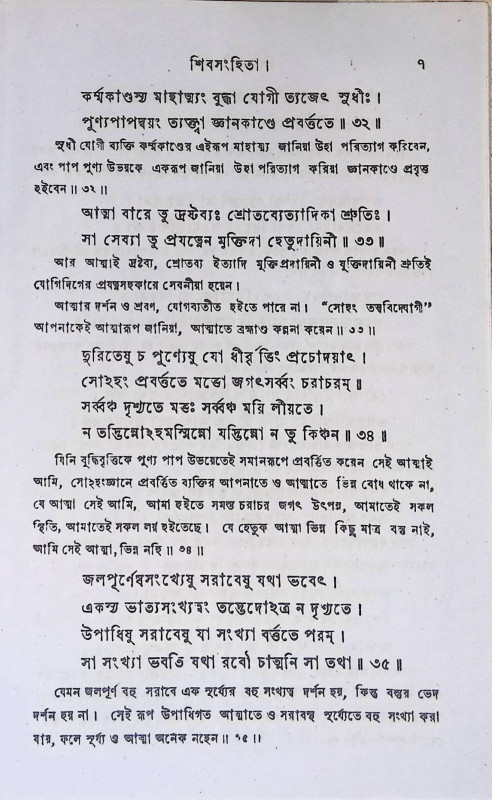 শিবসংহিতা। ৭
কর্ম্মকাণ্ডস্য মাহাত্ম্যং বুদ্ধা যোগী ত্যজেৎ সুধীঃ।
পুণ্যপাপদ্বয়ং ত্যক্ত্বা জ্ঞানকাণ্ডে প্রবর্ত্ততে॥ ৩২॥
সুধী যোগী ব্যক্তি কর্ম্মকাণ্ডের এইরূপ মাহাত্ম্য জানিয়া উহা পরিত্যাগ করিবেন,
এবং পাপ পুণ্য উভয়কে একরূপ জানিয়া উহা পরিত্যাগ করিয়া জ্ঞানকাণ্ডে প্রবৃত্ত
হইবেন॥ ৩২॥
আত্মা বারে তু দ্রষ্টব্যঃ শ্রোতব্যেত্যাদিকা শ্রুতিঃ।
সা সেব্যা তু প্রযত্নেন মুক্তিদা হেতুদায়িনী॥ ৩৩॥
আর আত্মাই দ্রষ্টব্য, শ্রোতব্য ইত্যাদি মুক্তিপ্রদায়িনী ও যুক্তিদায়িনী শ্রুতিই
যোগিদিগের প্রযত্নসহকারে সেবনীয়া হয়েন।
আত্মার দর্শন ও শ্রবণ, যোগব্যতীত হইতে পারে না। “সোহং তত্ত্ববিদেযাগী”
আপনাকেই আত্মারূপ জানিয়া, আত্মাতে ব্রহ্মাণ্ড কল্পনা করেন॥ ৩৩॥
দুরিতেষু চ পুণ্যেষু যো ধীর্বৃত্তিং প্রচোদয়াৎ।
সোঽহং প্রবর্ত্ততে মত্তো জগৎসর্ব্বং চরাচরম্॥
সর্ব্বঞ্চ দৃশ্যতে মত্তঃ সর্ব্বঞ্চ ময়ি লীয়তে।
ন তদ্ভিন্নোঽহমস্মিন্নো যদ্ভিন্নো ন তু কিঞ্চন॥ ৩৪॥
যিনি বুদ্ধিবৃত্তিকে পুণ্য পাপ উভয়েতেই সমানরূপে প্রবর্ত্তিত করেন সেই আত্মাই
আমি, সোঽহংজ্ঞানে প্রবর্ত্তিত ব্যক্তির আপনাতে ও আত্মাতে ভিন্ন বোধ থাকে না,
যে আত্মা সেই আমি, আমা হইতে সমস্ত চরাচর জগৎ উৎপন্ন, আমাতেই সকল
স্থিতি, আমাতেই সকল লয় হইতেছে। যে হেতুক আত্মা ভিন্ন কিছু মাত্র বস্তু নাই,
আমি সেই আত্মা, ভিন্ন নহি॥ ৩৪॥
জলপূর্ণেষ্বসংখ্যেষু সরাবেষু যথা ভবেৎ।
একস্য ভাত্যসংখ্যত্বং তদ্ভেদোঽত্র ন দৃশ্যতে।
উপাধিষু সরাবেষু যা সংখ্যা বর্ত্ততে পরম্।
সা সংখ্যা ভবতি যথা রবৌ চাত্মনি সা তথা॥ ৩৫॥
যেমন জলপূর্ণ বহু সরাবে এক সূর্য্যের বহু সংখ্যত্ব দর্শন হয়, কিন্তু বস্তুর ভেদ
দর্শন হয় না। সেই রূপ উপাধিগত আত্মাতে ও সরাবস্থ সূর্য্যেতে বহু সংখ্যা করা
যায়, ফলে সূর্য্য ও আত্মা অনেক নহেন॥ ৩৫॥